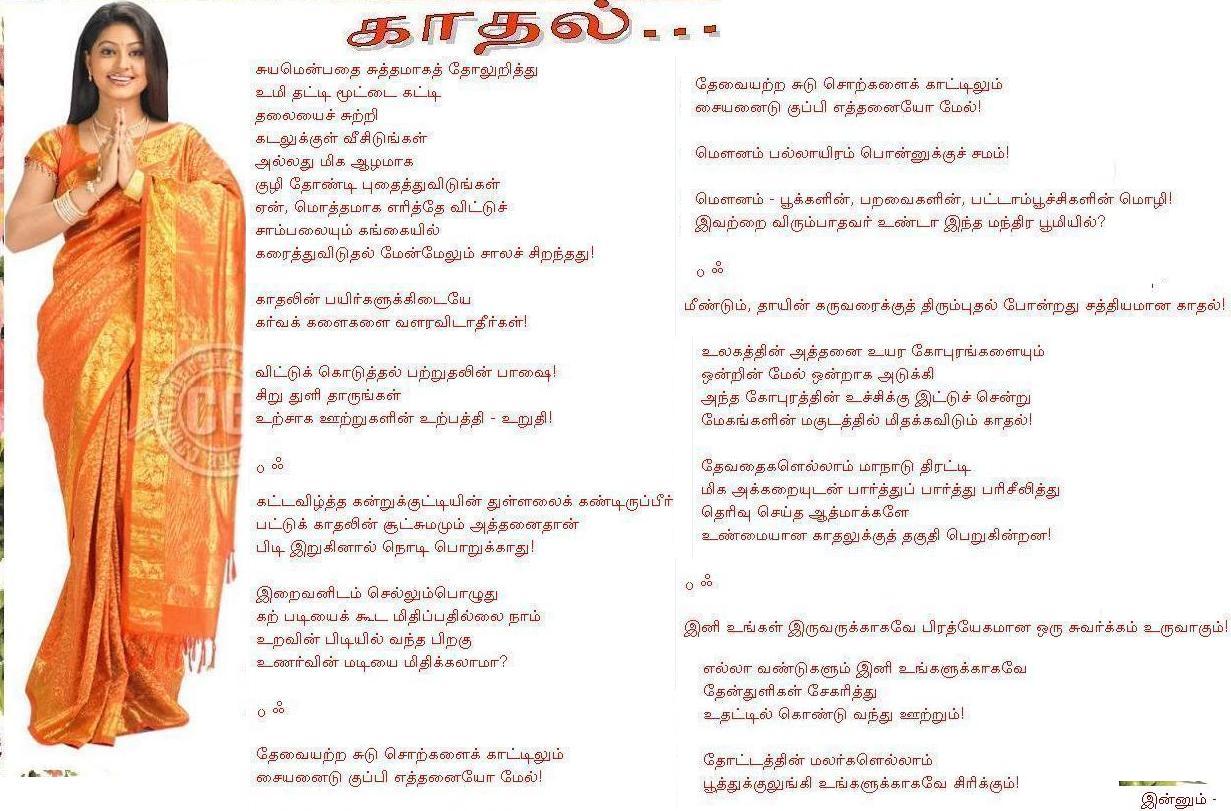 காதல்...
சுயமென்பதை சுத்தமாகத் தோலுறித்து
உமி தட்டி மூட்டை கட்டி
தலையைச் சுற்றி
கடலுக்குள் வீசிடுங்கள்
அல்லது மிக ஆழமாக
குழி தோண்டி புதைத்துவிடுங்கள்
ஏன், மொத்தமாக எரித்தே விட்டுச்
சாம்பலையும் கங்கையில்
கரைத்துவிடுதல் மேன்மேலும் சாலச் சிறந்தது!
காதலின் பயிர்களுக்கிடையே
கர்வக் களைகளை வளரவிடாதீர்கள்!
விட்டுக் கொடுத்தல் பற்றுதலின் பாஷை!
சிறு துளி தாருங்கள்
உற்சாக ஊற்றுகளின் உற்பத்தி - உறுதி!
0 ஃ
கட்டவிழ்த்த கன்றுக்குட்டியின் துள்ளலைக் கண்டிருப்பீர்
பட்டுக் காதலின் சூட்சுமமும் அத்தனைதான்
பிடி இறுகினால் நொடி பொறுக்காது!
இறைவனிடம் செல்லும்பொழுது
கற் படியைக் கூட மிதிப்பதில்லை நாம்
உறவின் பிடியில் வந்த பிறகு
உணர்வின் மடியை மிதிக்கலாமா?
0 ஃ
தேவையற்ற சுடு சொற்களைக் காட்டிலும்
சையனைடு குப்பி எத்தனையோ மேல்!
தேவையற்ற சுடு சொற்களைக் காட்டிலும்
சையனைடு குப்பி எத்தனையோ மேல்!
மௌனம் பல்லாயிரம் பொன்னுக்குச் சமம்!
மௌனம் - பூக்களின், பறவைகளின், பட்டாம்பூச்சிகளின் மொழி!
இவற்றை விரும்பாதவர் உண்டா இந்த மந்திர பூமியில்?
0 ஃ
மீண்டும், தாயின் கருவரைக்குத் திரும்புதல் போன்றது சத்தியமான காதல்!
உலகத்தின் அத்தனை உயர கோபுரங்களையும்
ஒன்றின் மேல் ஒன்றாக அடுக்கி
அந்த கோபுரத்தின் உச்சிக்கு இட்டுச் சென்று
மேகங்களின் மகுடத்தில் மிதக்கவிடும் காதல்!
தேவதைகளெல்லாம் மாநாடு திரட்டி
மிக அக்கறையுடன் பார்த்துப் பார்த்து பரிசீலித்து
தெரிவு செய்த ஆத்மாக்களே
உண்மையான காதலுக்குத் தகுதி பெறுகின்றன!
0 ஃ
இனி உங்கள் இருவருக்காகவே பிரத்யேகமான ஒரு சுவர்க்கம் உருவாகும்!
எல்லா வண்டுகளும் இனி உங்களுக்காகவே
தேன்துளிகள் சேகரித்து
உதட்டில் கொண்டு வந்து ஊற்றும்!
தோட்டத்தின் மலர்களெல்லாம்
பூத்துக்குலுங்கி உங்களுக்காகவே சிரிக்கும்!
இன்னும் -